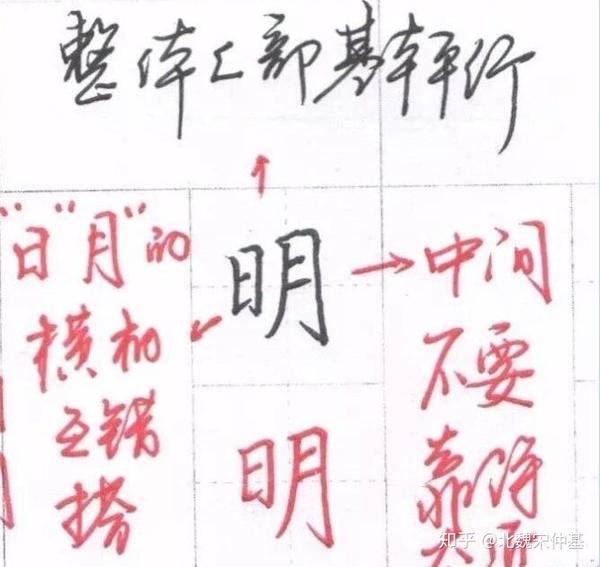 整体上部基本平行
"日"月"的
横相
互错
搭
明
明
中间
不要
靠得
知乎 @北魏宋仲基